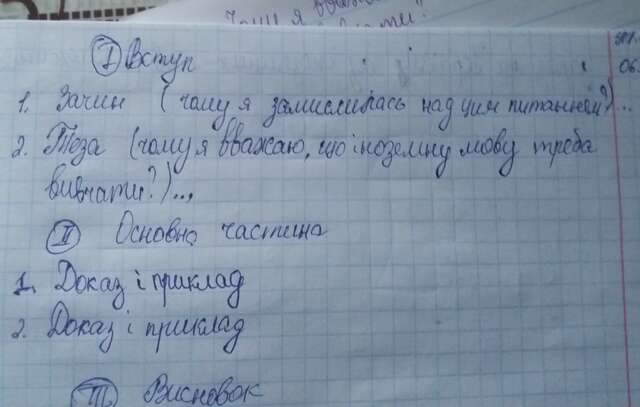 чому я
Ⅰ Вступ
1. Зачин (чому я замислилась над цим питанням?)...
2. Теза (чому я вважаю, що іноземну мову треба
вивчати?)...
Ⅱ Основна частина
1. Доказ і приклад
2. Доказ і приклад
Ⅲ Висновок
06.